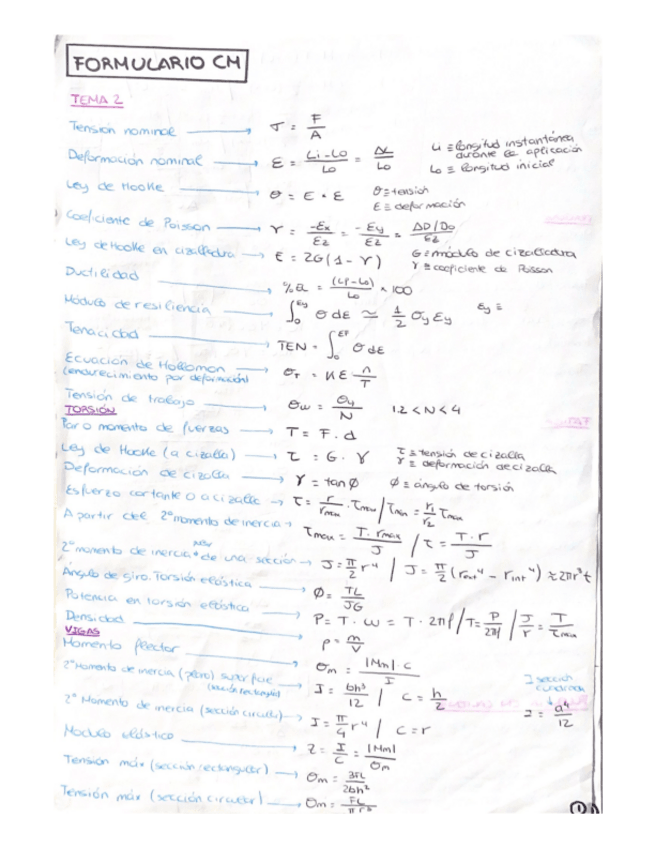 FORMULARIO CM
TEMA 2
Tensión nominal → σ = F/A
Deformación nominal → ε = (Li-Lo)/Lo = ΔL/Lo   Li ≡ longitud instantánea durante la aplicación
Lo ≡ longitud inicial
Ley de Hooke → σ = E · ε   σ ≡ tensión
ε ≡ deformación
Coeficiente de Poisson → γ = -εx/εz = -εy/εz = (ΔD/Do)/εz
Ley de Hooke en cizalladura → E = 2G(1 - γ)   G = módulo de cizalladura
γ ≡ coeficiente de Poisson
Ductilidad → %EL = (Lf-Lo)/Lo × 100
Módulo de resiliencia → ∫₀^εy σ dε ≃ 1/2 σy εy   εy ≡
Tenacidad → TEN = ∫₀^εf σ dε
Ecuación de Hollomon
(endurecimiento por deformación) → σT = K ε n/T
Tensión de trabajo → σw = σy/N   1.2 < N < 4
TORSIÓN
Par o momento de fuerzas → T = F · d
Ley de Hooke (a cizalla) → τ = G · γ   τ ≡ tensión de cizalla
γ ≡ deformación de cizalla
Deformación de cizalla → γ = tan φ   φ ≡ ángulo de torsión
Esfuerzo cortante o a cizalla → τ = r/rmax · τmax / τmin = r1/r2 τmax
A partir del 2º momento de inercia → τmax = T · rmax/J / τ = T · r/J
2º momento de inercia de una sección → J = π/2 r⁴ / J = π/2 (rext⁴ - rint⁴) ≈ 2πr³t
Ángulo de giro. Torsión elástica → φ = TL/JG
Potencia en torsión elástica → P = T · ω = T · 2πf / T = P/2πf / J/r = T/τmax
Densidad → ρ = m/V
VIGAS
Momento flector → σm = |Mm| c/I
2º Momento de inercia (pero) superficie
(sección rectangular) → I = bh³/12 / c = h/2   I sección cuadrada
I = a⁴/12
2º Momento de inercia (sección circular) → I = π/4 r⁴ / c = r
Modulo elástico → Z = I/c = |Mm|/σm
Tensión máx (sección rectangular) → σm = 3FL/2bh²
Tensión máx (sección circular) → σm = FL/πr³
1